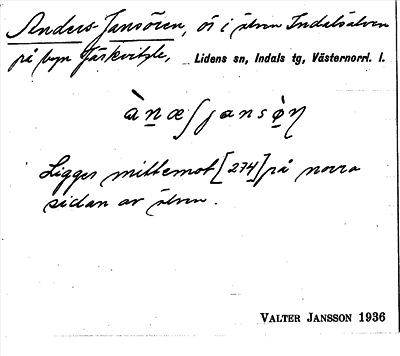 Anders-Jansören, ö i älven Indalsälven
på byn Järkvitsle, Lidens sn, Indals tg, Västernorrl. l.
Ligger mittemot [274] på norra
sidan av älven.
VALTER JANSSON 1936